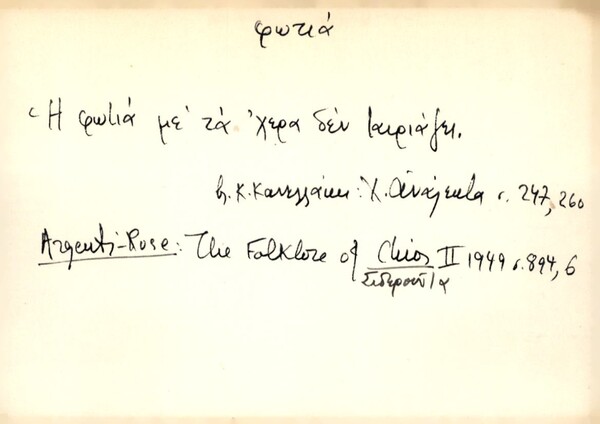 φωτιά
Ἡ φωτιά μέ τά χέρα δέν ταιριάζει.
β. Κ. Κανελλάκη: Χ. Ἀνάλεκτα σ. 247, 260
Argenti-Rose: The Folklore of Chios II 1949 σ. 894, 6
Σιδερούντα